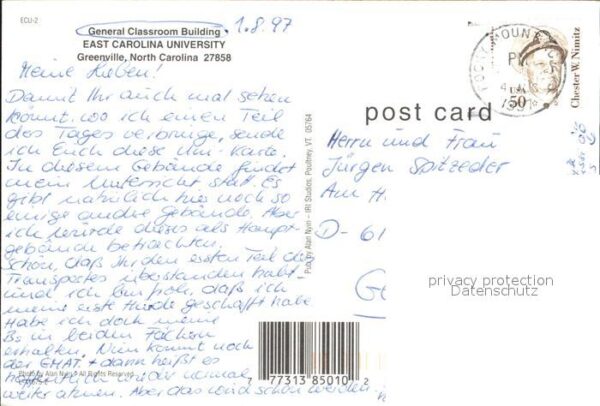 ECU-2
General Classroom Building
1.8.97
EAST CAROLINA UNIVERSITY
Greenville, North Carolina 27858
Meine Lieben!
Damit Ihr auch mal sehen
könnt, wo ich einen Teil
des Tages verbringe, sende
ich Euch diese Uni-Karte.
In diesem Gebäude findet
mein Unterricht statt. Es
gibt natürlich hier noch so
einige andre Gebäude. Aber
ich würde dieses als Haupt-
gebäude betrachten.
Schön, daß Ihr den ersten Teil des
Transportes überstanden habt
und ich bin froh, daß ich
meine erste Hürde geschafft habe.
Habe ich doch meine
Bs in beiden Fächern
erhalten. Nun kommt noch
der GMAT + dann heißt es
hoffentlich wieder normal
weiter atmen. Aber das wird schön werden.
Photo by Alan Nyiri • All Rights Reserved
Pub. by Alan Nyiri - IRI Studios, Poultney, VT. 05764
7 77313 85010 2
post card
ROCKY MOUNT
PM
USA
50
Chester W. Nimitz
Herrn und Frau
Jürgen Spitzeder
Am H.
D-61
Ge
privacy protection
Datenschutz